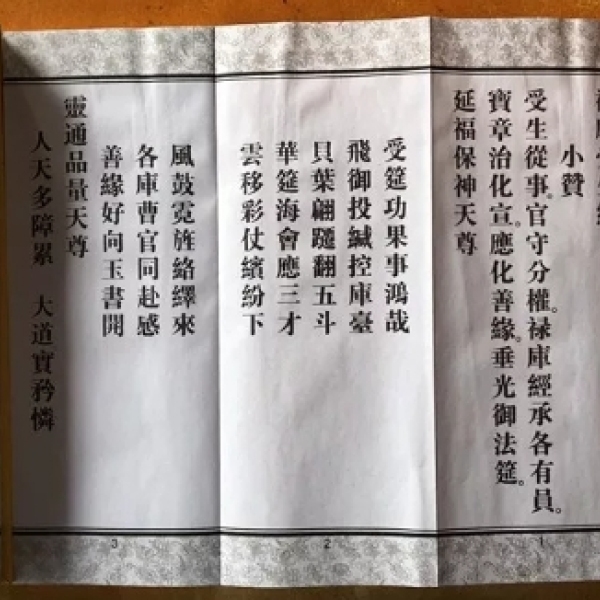 小贊
受生從事。官守分權。祿庫經承各有員。
寶章治化宣。應化善緣。垂光御法筵。
延福保神天尊
1
受筵功果事鴻哉
飛御投緘控庫臺
貝葉翩躚翻五斗
華筵海會應三才
雲移彩仗繽紛下
2
風鼓霓旌絡繹來
各庫曹官同赴感
善緣好向玉書開
靈通品量天尊
人天多障累　大道實矜憐
3